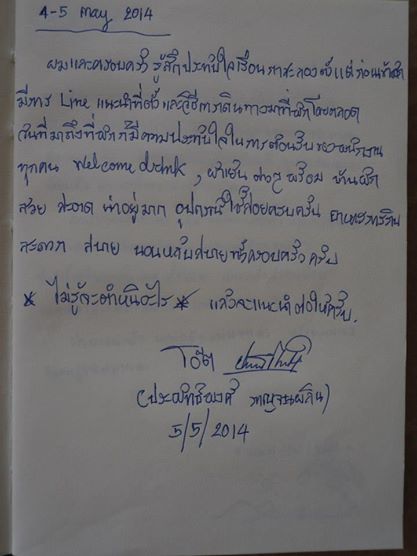 4-5 May 2014
ผมและครอบครัว รู้สึกประทับใจเรือนกาสะลองตั้งแต่ก่อนเข้าพัก
มีการ Line แนะนำที่ตั้ง และวิธีการเดินทางมาที่พักโดยตลอด
วันที่มาถึงที่พัก ก็มีความประทับใจในการต้อนรับ ของพนักงาน
ทุกคน Welcome drink , ผ้าเย็น พร้อม บ้านพัก
สวย สะอาด น่าอยู่มาก อุปกรณ์ใช้สอยครบครัน
สะดวก สบาย นอนหลับสบายทั้งครอบครัว ครับ
* ไม่รู้จะตำหนิอะไร * แล้วจะแนะนำต่อให้ครับ.
โอ๊ต
(ประสิทธิพงศ์)
5/5/2014